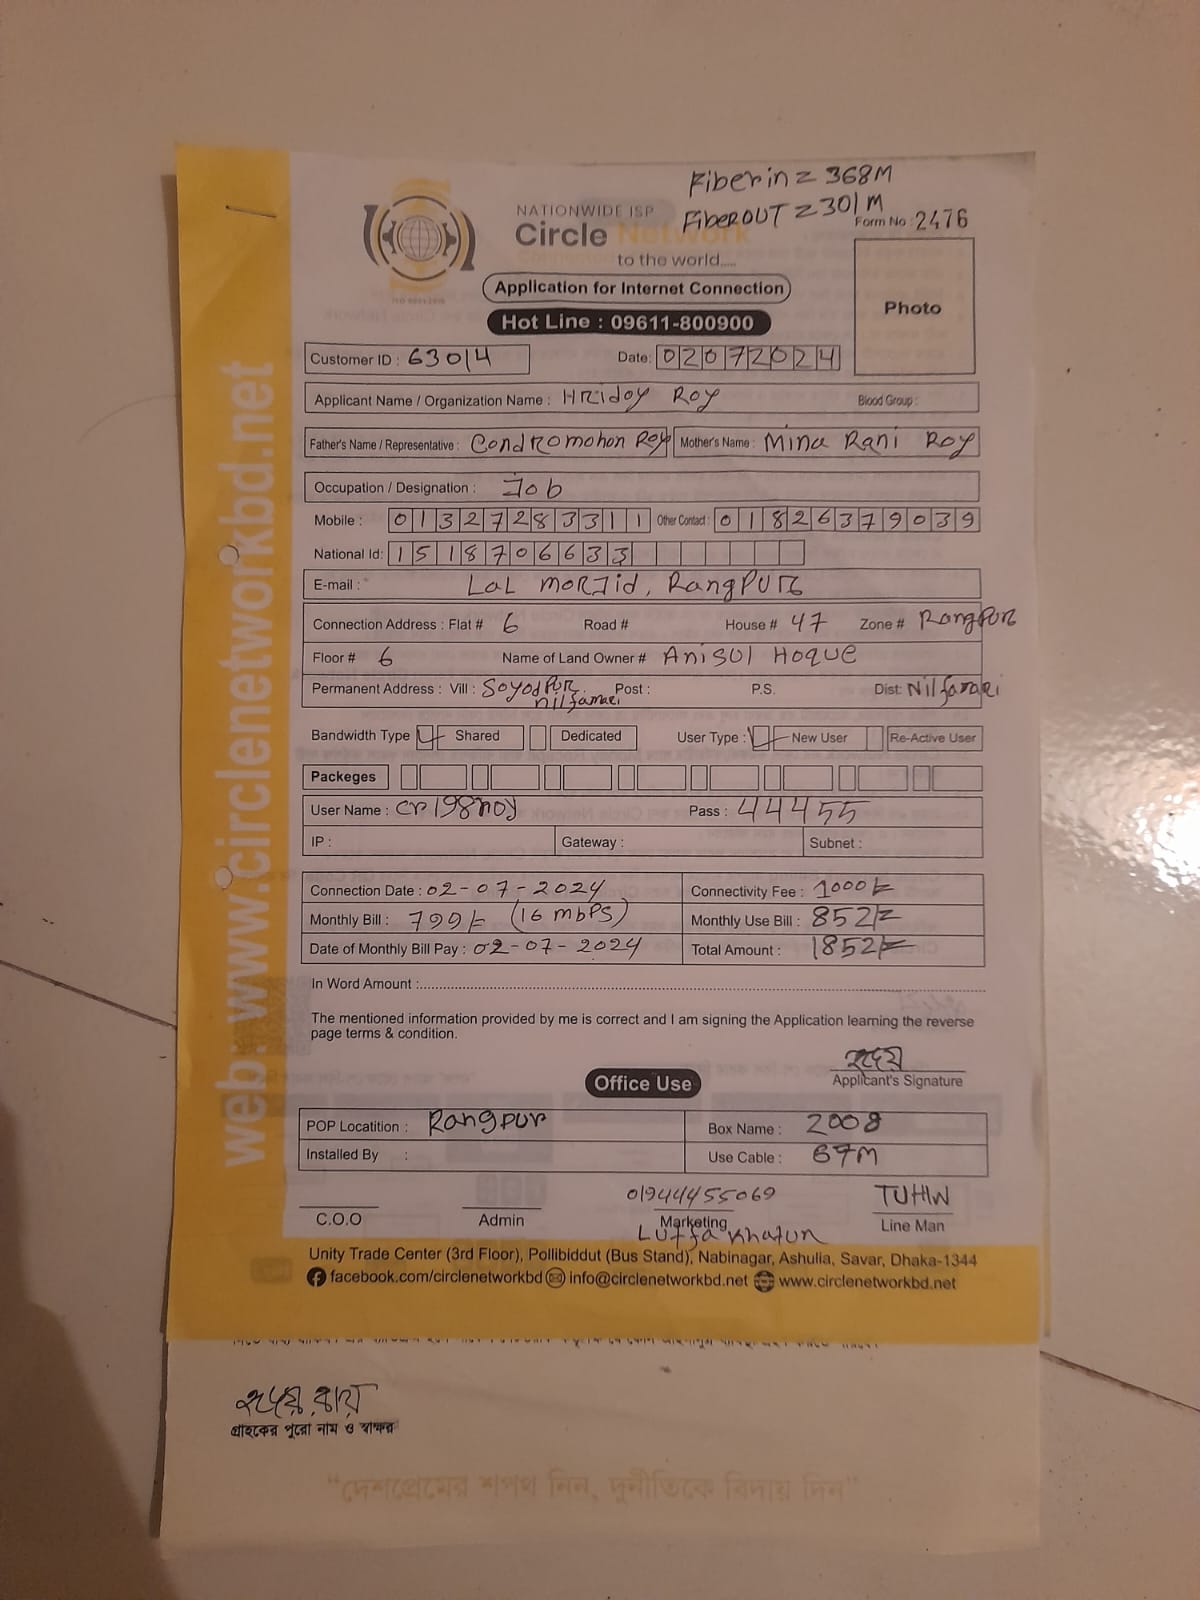 Fiber in = 368M
Fiber OUT = 301 M
NATIONWIDE ISP
Form No : 2476
Circle Network
to the world.....
Application for Internet Connection
Photo
Hot Line : 09611-800900
Customer ID : 63014 Date: 02072024
Applicant Name / Organization Name : HRidoy Roy Blood Group :
Father's Name / Representative : Condromohon Roy Mother's Name : Mina Rani Roy
Occupation / Designation : Job
Mobile : 01327283311 Other Contact : 01826379039
National Id: 1518706633
E-mail : LaL morJid, RangPUR
Connection Address : Flat # 6 Road # House # 47 Zone # RangPUR
Floor # 6 Name of Land Owner # Anisul Hoque
Permanent Address : Vill : SoyodPUR Post : P.S. Dist: Nilfamari
nilfamari
Bandwidth Type Shared Dedicated User Type : New User Re-Active User
Packeges
User Name : cr198roy Pass : 44455
IP : Gateway : Subnet :
Connection Date : 02-07-2024 Connectivity Fee : 1000/=
Monthly Bill : 799/= (16 mbPS) Monthly Use Bill : 852/=
Date of Monthly Bill Pay : 02-07-2024 Total Amount : 1852/=
In Word Amount :
The mentioned information provided by me is correct and I am signing the Application learning the reverse
page terms & condition.
হৃদয়
Applicant's Signature
Office Use
POP Locatition : Rangpur Box Name : 2008
Installed By : Use Cable : 67M
01944455069 TUHIN
C.O.O Admin Marketing Line Man
Lutfa Khatun
Unity Trade Center (3rd Floor), Pollibiddut (Bus Stand), Nabinagar, Ashulia, Savar, Dhaka-1344
facebook.com/circlenetworkbd info@circlenetworkbd.net www.circlenetworkbd.net
web: www.circlenetworkbd.net
হৃদয় রায়
গ্রাহকের পুরো নাম ও স্বাক্ষর
“দেশপ্রেমের শপথ নিন, দুর্নীতিকে বিদায় দিন”